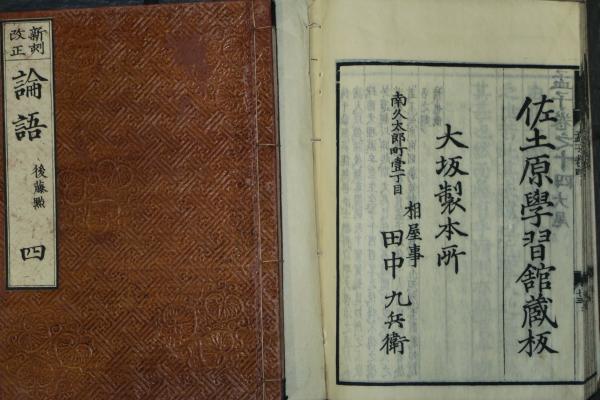 新刻
改正
論語
後藤點
四
佐土原學習舘蔵板
大坂製本所
南久太郎町壹丁目
相屋事
田中九兵衛